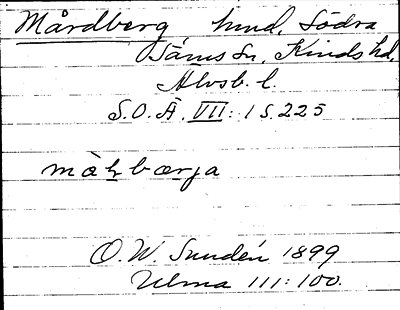 Mårdberg, hmd, Södra
Säms sn, Kinds hd,
Älvsb. l.
S.O.Ä. VII: 1 S. 225
mǻrbærja
O. W. Sundén 1899
Ulma 111:100.